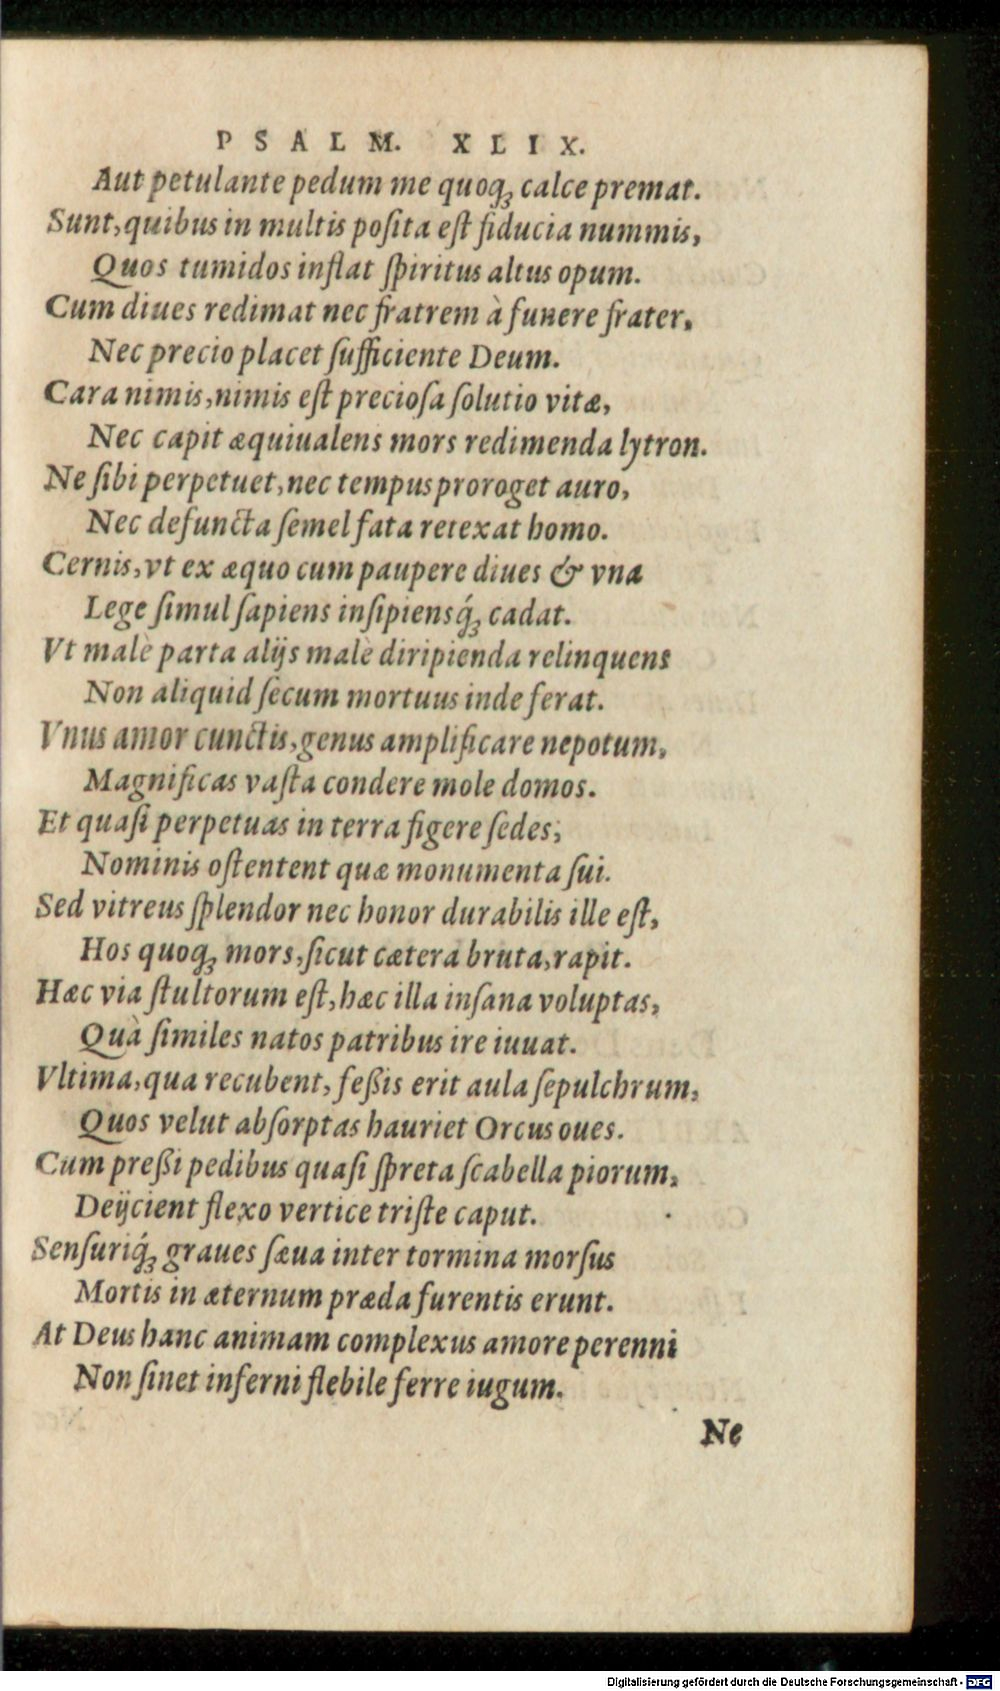 PSALM. XLIX.
Aut petulante pedum me quoqꝫ calce premat.
Sunt, quibus in multis poſita eſt fiducia nummis,
Quos tumidos inflat ſpiritus altus opum.
Cum diues redimat nec fratrem à funere frater,
Nec precio placet ſufficiente Deum.
Cara nimis, nimis eſt precioſa ſolutio vitæ,
Nec capit æquiualens mors redimenda lytron.
Ne ſibi perpetuet, nec tempus proroget auro,
Nec defuncta ſemel fata retexat homo.
Cernis, vt ex æquo cum paupere diues & vna
Lege ſimul ſapiens inſipiensq́ꝫ cadat.
Vt malè parta alijs malè diripienda relinquens
Non aliquid ſecum mortuus inde ferat.
Vnus amor cunctis, genus amplificare nepotum,
Magnificas vaſta condere mole domos.
Et quaſi perpetuas in terra figere ſedes,
Nominis oſtentent quæ monumenta ſui.
Sed vitreus ſplendor nec honor durabilis ille eſt,
Hos quoqꝫ mors, ſicut cætera bruta, rapit.
Hæc via ſtultorum eſt, hæc illa inſana voluptas,
Quà ſimiles natos patribus ire iuuat.
Vltima, qua recubent, feßis erit aula ſepulchrum,
Quos velut abſorptas hauriet Orcus oues.
Cum preßi pedibus quaſi ſpreta ſcabella piorum,
Deijcient flexo vertice triſte caput.
Senſuriq́ꝫ graues ſæua inter tormina morſus
Mortis in æternum præda furentis erunt.
At Deus hanc animam complexus amore perenni
Non ſinet inferni flebile ferre iugum.
Ne
Digitalisierung gefördert durch die Deutsche Forschungsgemeinschaft - DFG